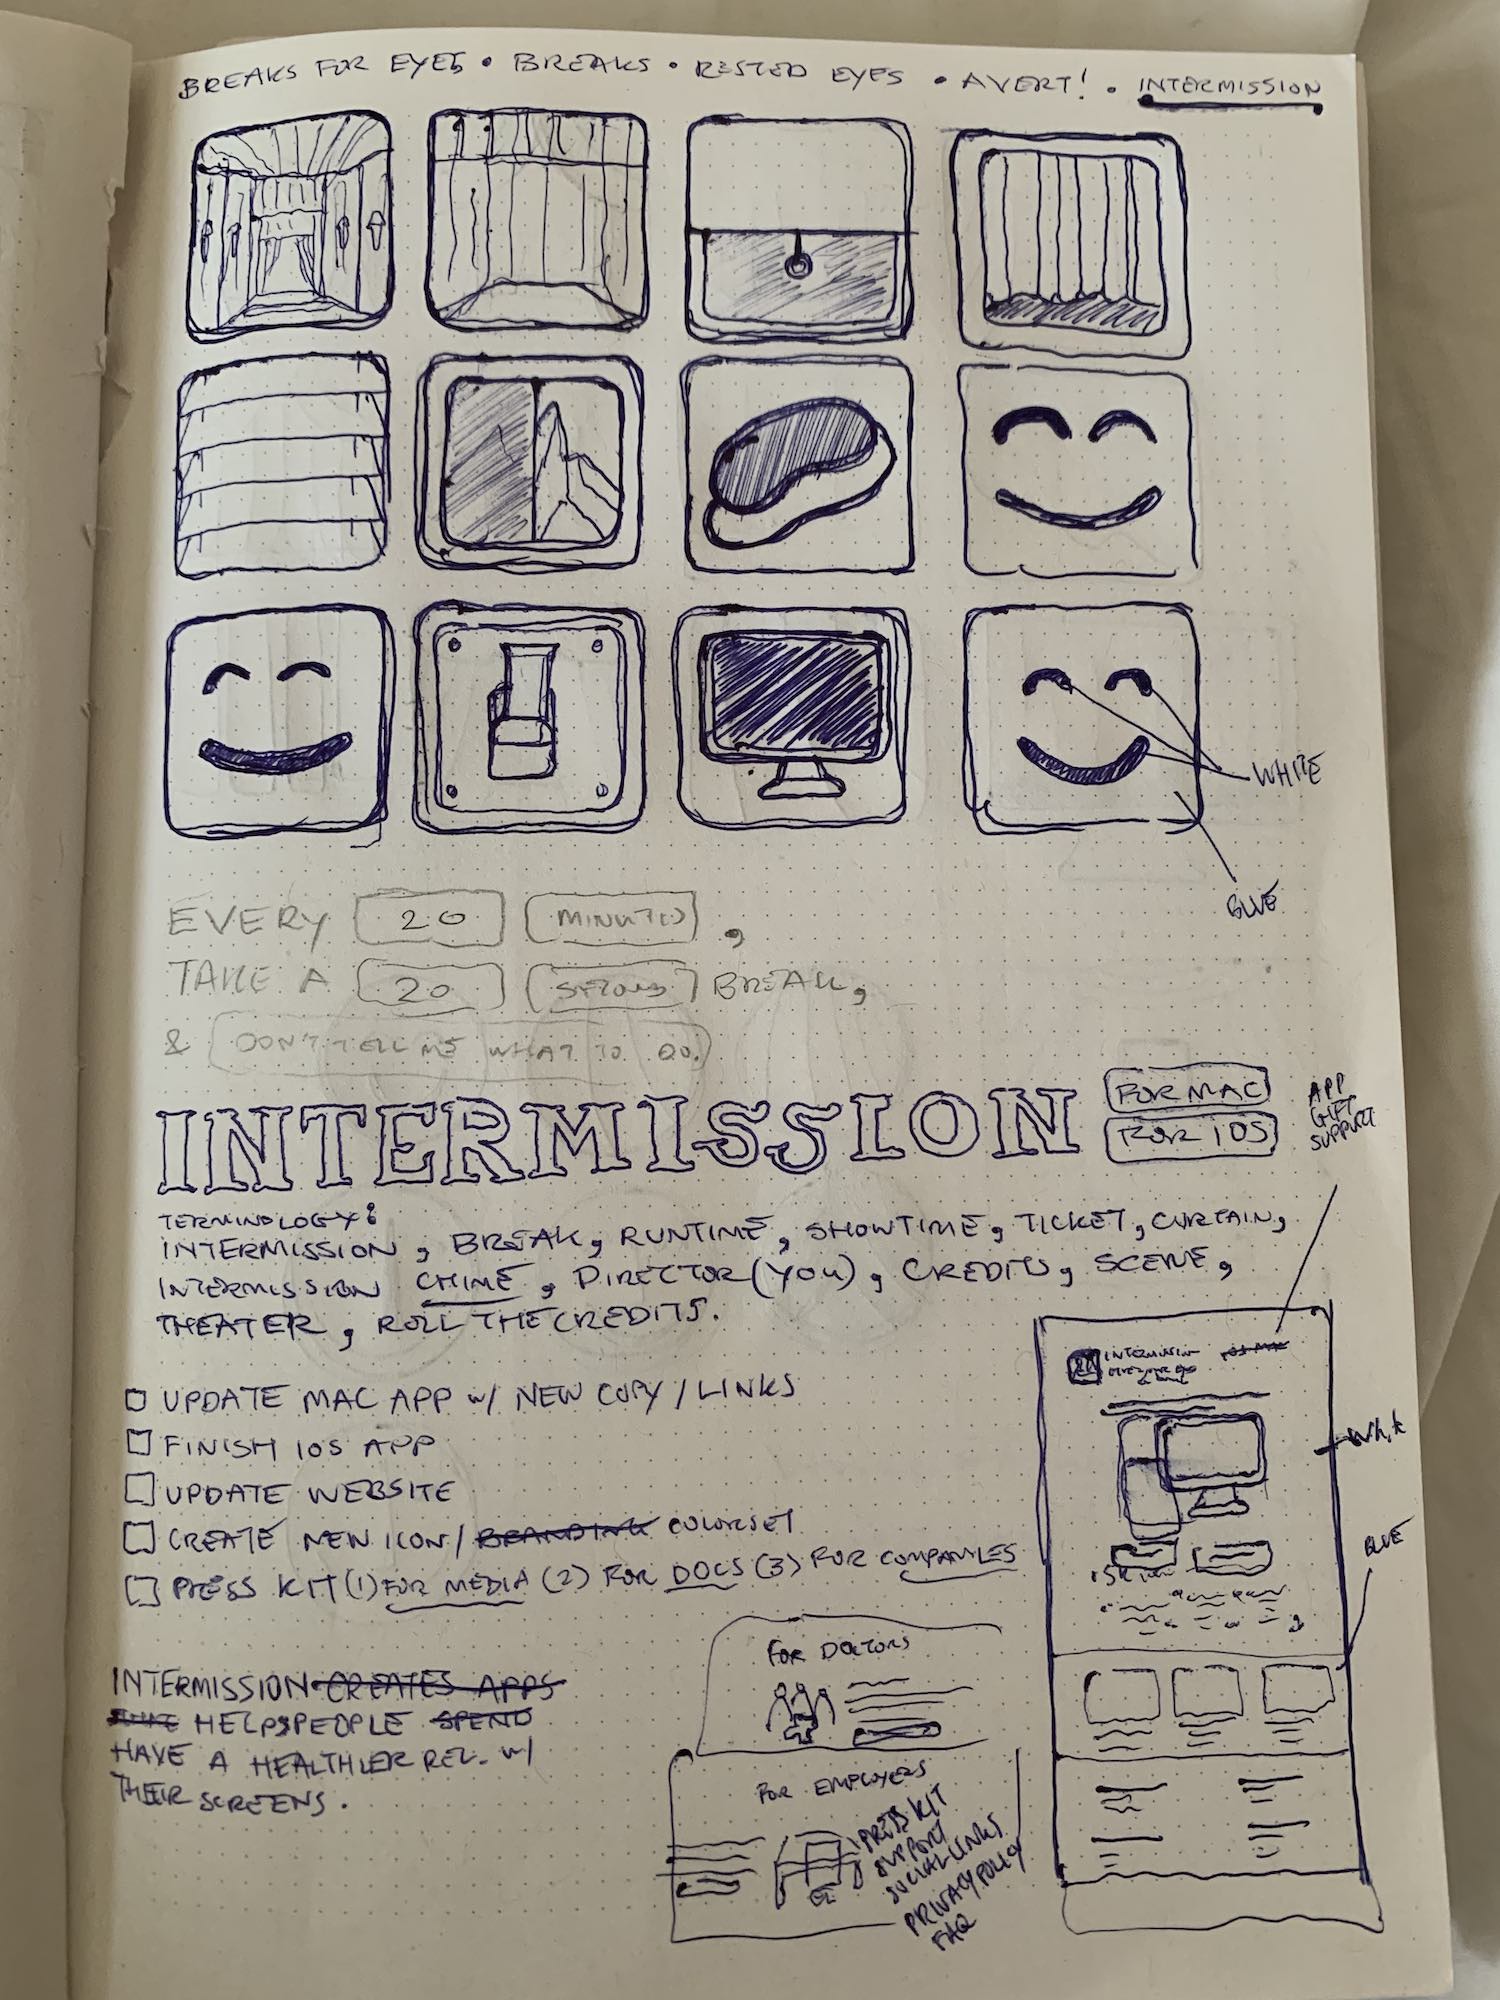 BREAKS FOR EYES • BREAKS • RESTED EYES • AVERT! • INTERMISSION
WHITE
BLUE
EVERY 20 MINUTES,
TAKE A 20 SECOND BREAK,
& DON'T TELL ME WHAT TO DO.
INTERMISSION
FOR MAC
FOR iOS
APP
GIFT
SUPPORT
TERMINOLOGY:
INTERMISSION, BREAK, RUNTIME, SHOWTIME, TICKET, CURTAIN,
INTERMISSION CHIME, DIRECTOR (YOU), CREDITS, SCENE,
THEATER, ROLL THE CREDITS.
UPDATE MAC APP w/ NEW COPY / LINKS
FINISH iOS APP
UPDATE WEBSITE
CREATE NEW ICON / BRANDING COLORSET
PRESS KIT (1) FOR MEDIA (2) FOR DOCS (3) FOR COMPANIES
INTERMISSION CREATES APPS
HELPS PEOPLE SPEND
HAVE A HEALTHIER REL. w/
THEIR SCREENS.
White
BLUE
FOR DOCTORS
FOR EMPLOYERS
PRESS KIT
SUPPORT
SOCIAL LINKS
PRIVACY POLICY
FAQ